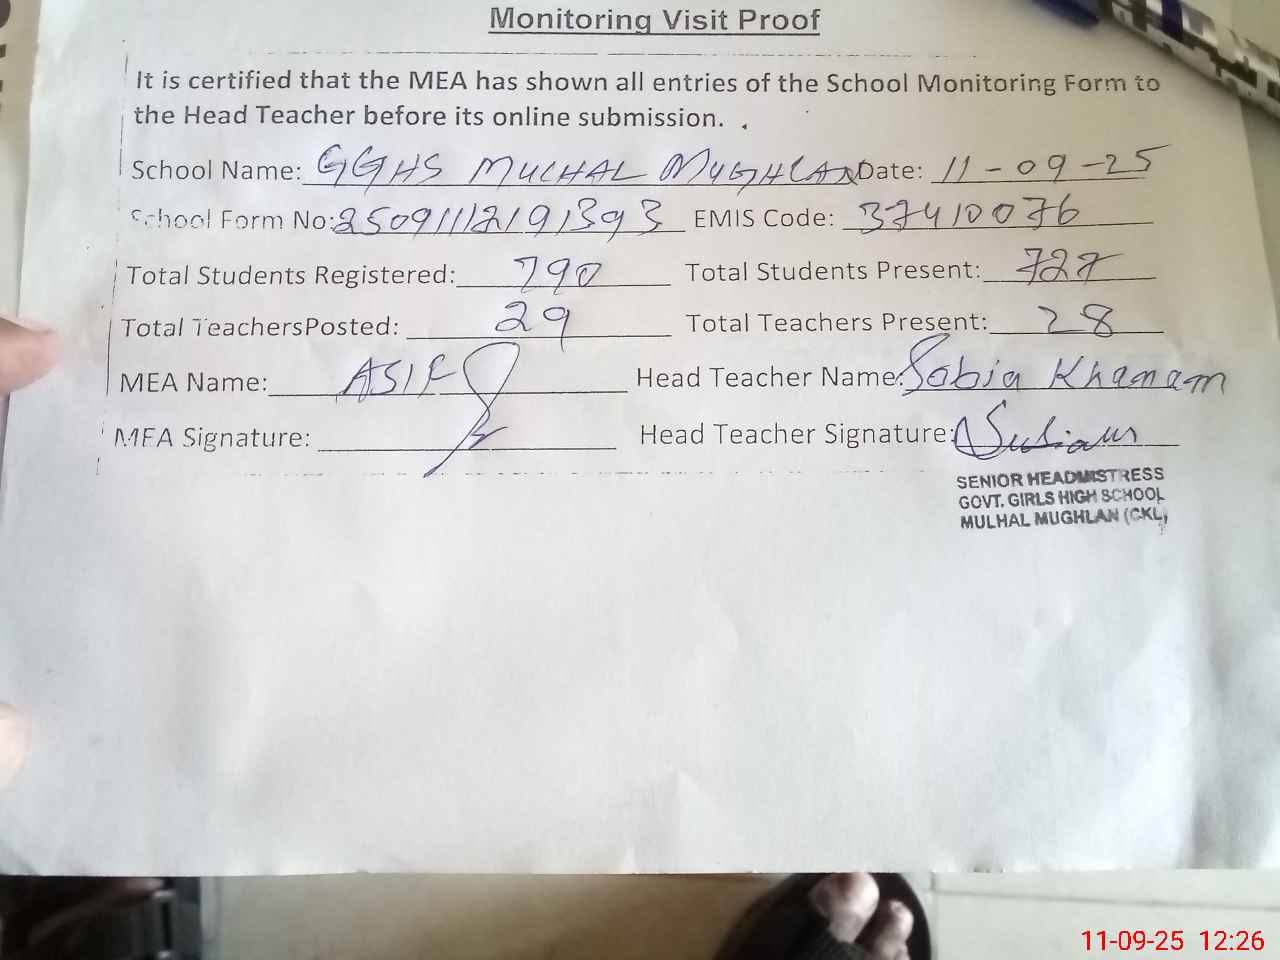 Monitoring Visit Proof
It is certified that the MEA has shown all entries of the School Monitoring Form to
the Head Teacher before its online submission.
School Name: GGHS MULHAL MUGHLAN Date: 11-09-25
School Form No: 25091112191393 EMIS Code: 37410076
Total Students Registered: 790 Total Students Present: 727
Total TeachersPosted: 29 Total Teachers Present: 28
MEA Name: ASIF Head Teacher Name: Sobia Khanam
MEA Signature: Head Teacher Signature:
SENIOR HEADMISTRESS
GOVT. GIRLS HIGH SCHOOL
MULHAL MUGHLAN (CKL)
11-09-25 12:26